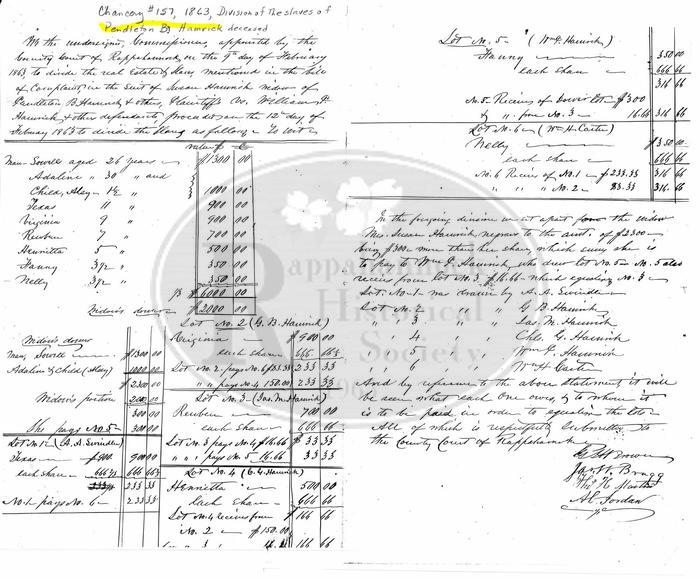 Chancery #157, 1863, Division of The slaves of
Pendleton B. Hamrick deceased
We the undersigned, Commissioners, appointed by the
County Court of Rappahannock on the 9th day of February
1863 to divide the real Estate & slaves mentioned in the bill
of Complaint, in the suit of Susan Hamrick widow of
Pendleton B Hamrick & others, Plaintiffs Vs. William
Hamrick & other defendants, proceeded on the 12th day of
February 1863 to divide the slaves as follows, To wit
Value $ c
Man Sowell aged 26 years $1300 00
Adaline " 30 " and
Child, Alsy 1½ " 1000 00
Texas 11 " 900 00
Virginia 9 " 900 00
Reuben 7 " 700 00
Henrietta 5 " 500 00
Fanny 3½ " 350 00
Nelly 3½ " 350 00
$6000 00
Widow's dower $2000 00
Widow's dower
Man, Sowell $1300 00
Adaline & Child (Alsy) 1000 00
$2300 00
Widow's portion 2000 00
300 00
She pays No 5 300 00
Lot No. 1 (A. A. Swindler)
Texas $900. 900 00
each share 666⅔ 666 66⅔
233 33
No. 1 pays No. 6 233 33
Lot No. 2 (G. B. Hamrick)
Virginia $900 00
each share 666 66⅔
Lot No. 2 pays No. 6 $83.33 233 33
" " pays No. 4 150.00 233 33
Lot No. 3 (Jas. M. Hamrick)
Reuben 700 00
each share 666 66
Lot No. 3 pays No. 4 $16.66 $33 33
" " pays No. 5 16.66 33 33
Lot No. 4 (C. G. Hamrick)
Henrietta 500 00
Each share 666 66
Lot No. 4 receives from $166 66
No. 2 $150.00
" " 3 166 66
Lot No. 5 (Wm G. Hamrick)
Fanny 350 00
each share 666 66
316 66
No. 5 Receives of Dower Lot $300
& " from No. 3 16.66 316 66
Lot No. 6 (Wm H. Carter)
Nelly $350 00
each share 666 66
No. 6 Receives of No. 1 $233.33 316 66
" " " No. 2 83.33 316 66
In the forgoing division we set apart for the widow
Mrs. Susan Hamrick negroes to the amt. of $2300
being $300 more than her share, which sum she is
to pay to Wm G. Hamrick who drew Lot No. 5 No. 5 also
receives from Lot No. 3 $16.66 which equalizes No. 3
Lot No. 1 was drawn by A. A. Swindler
Lot No. 2 " " G B. Hamrick
" " 3 " " Jas M. Hamrick
" " 4 " " Chs. G. Hamrick
" " 5 " " Wm G. Hamrick
" " 6 " " Wm H. Carter
And by reference to the above statement it will
be seen what each one owes, & to whom it
is to be paid in order to equalize the lots
All of which is respectfully submitted to
the County Court of Rappahannock
Jas. W. Bragg
A. C. Jordan
Rappahannock
Historical
Society